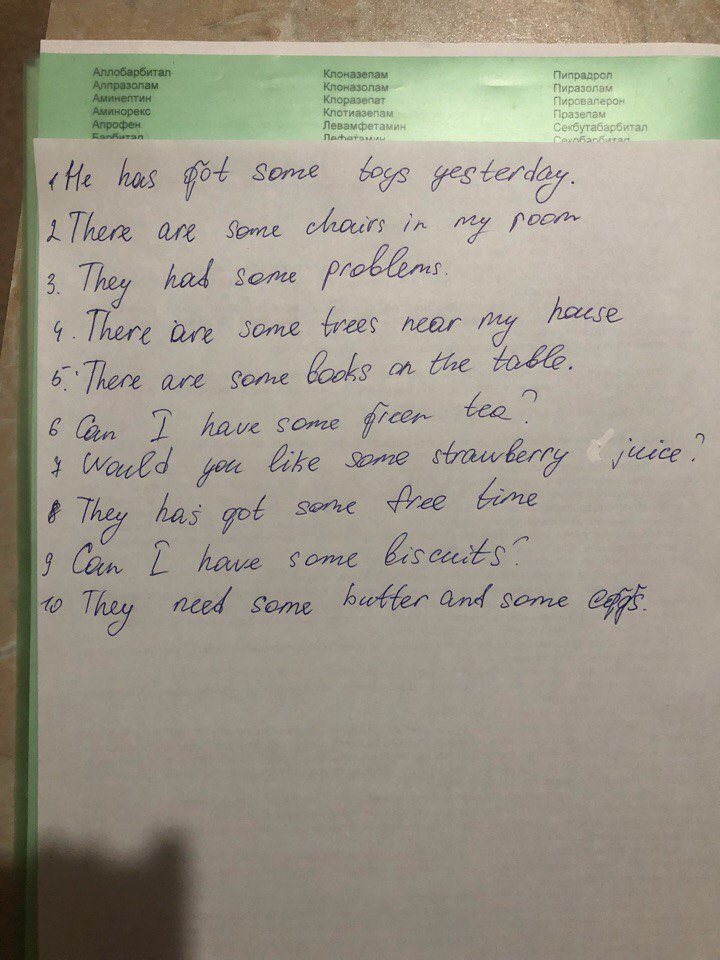 Аллобарбитал Клоназепам Пипрадрол
Алпразолам Клоназолам Пиразолам
Аминептин Клоразепат Пировалерон
Аминорекс Клотиазепам Празепам
Апрофен Левамфетамин Секбутабарбитал
Барбитал Лефетамин Секобарбитал
1 He has got some toys yesterday.
2 There are some chairs in my room
3. They had some problems.
4. There are some trees near my house
5. There are some books on the table.
6 Can I have some green tea?
7 Would you like some strawberry juice?
8 They has got some free time
9 Can I have some biscuits?
10 They need some butter and some eggs.